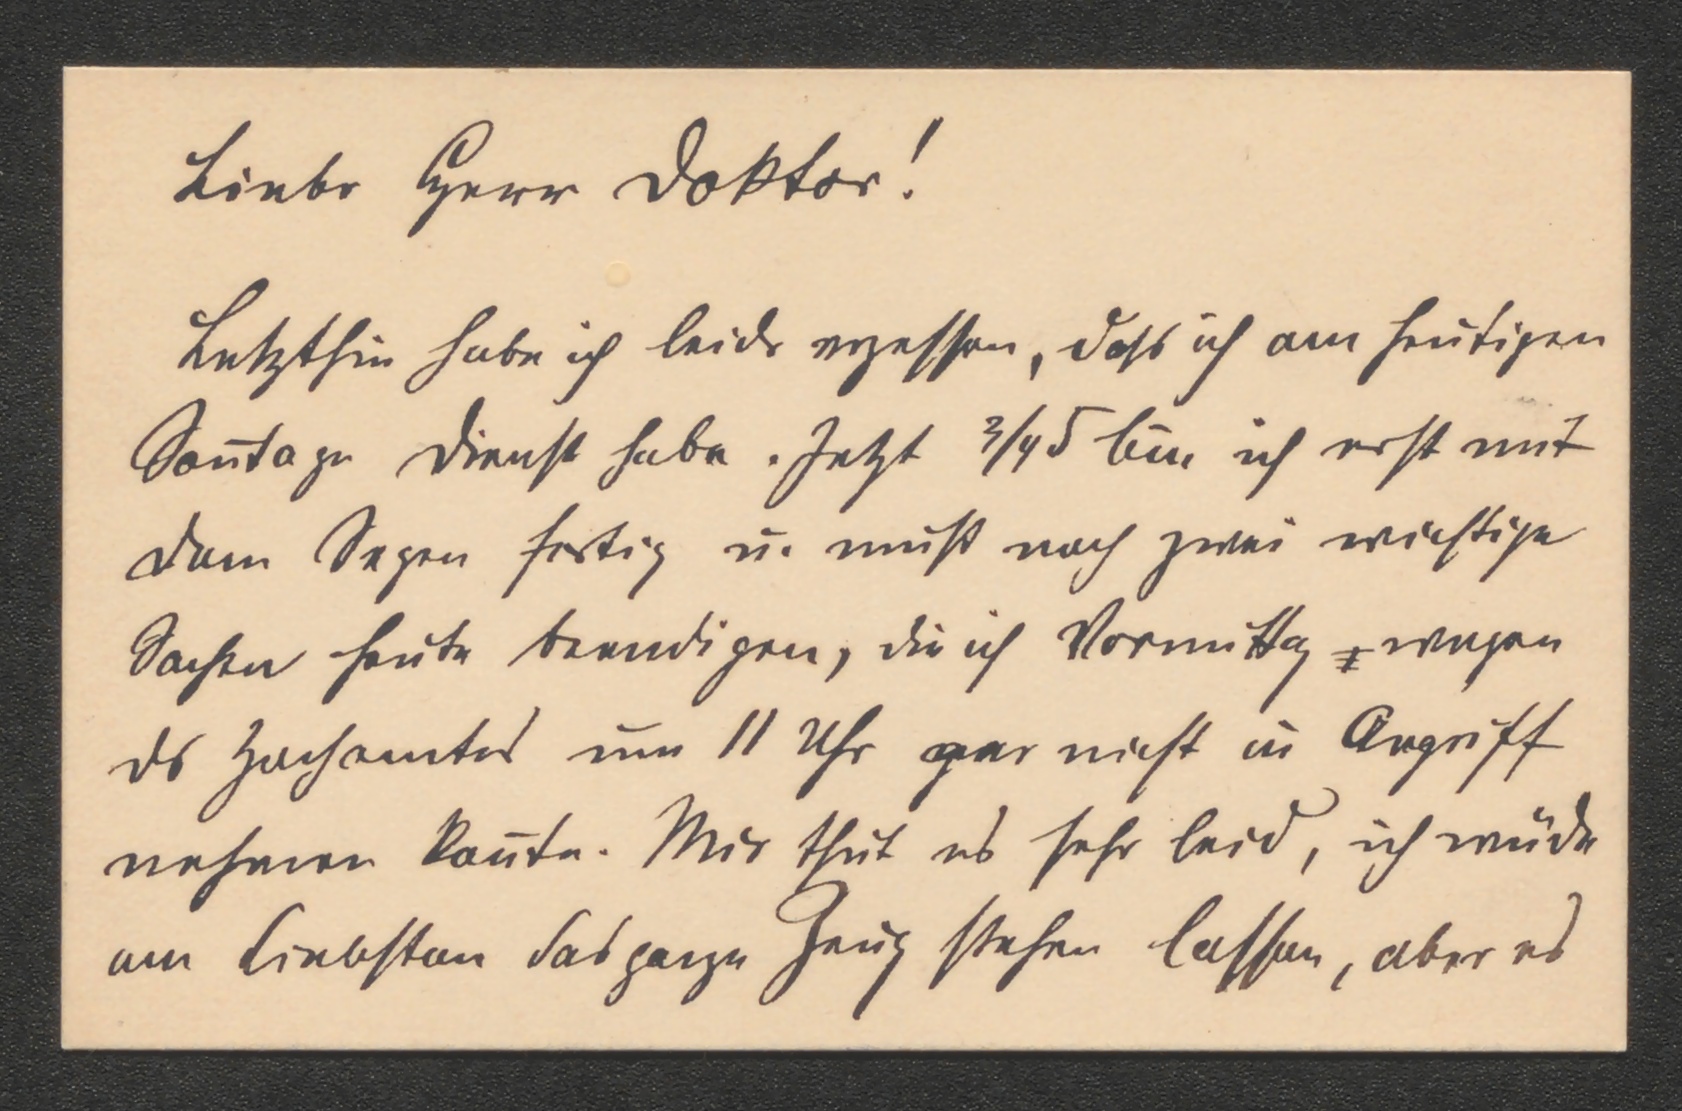 Lieber Herr Doktor!
Letzthin habe ich leider vergessen, daß ich am heutigen
Soñtage Dienst habe. Jetzt 3/4 5 bin ich erst mit
dem Segen fertig u. muß noch zwei wichtige
Sachen heute beendigen, die ich Vormittag wegen
des Hochamtes um 11 Uhr gar nicht in Angriff
nehmen koñte. Mir thut es sehr leid, ich würde
am Liebsten das ganze Zeug stehen lassen, aber es